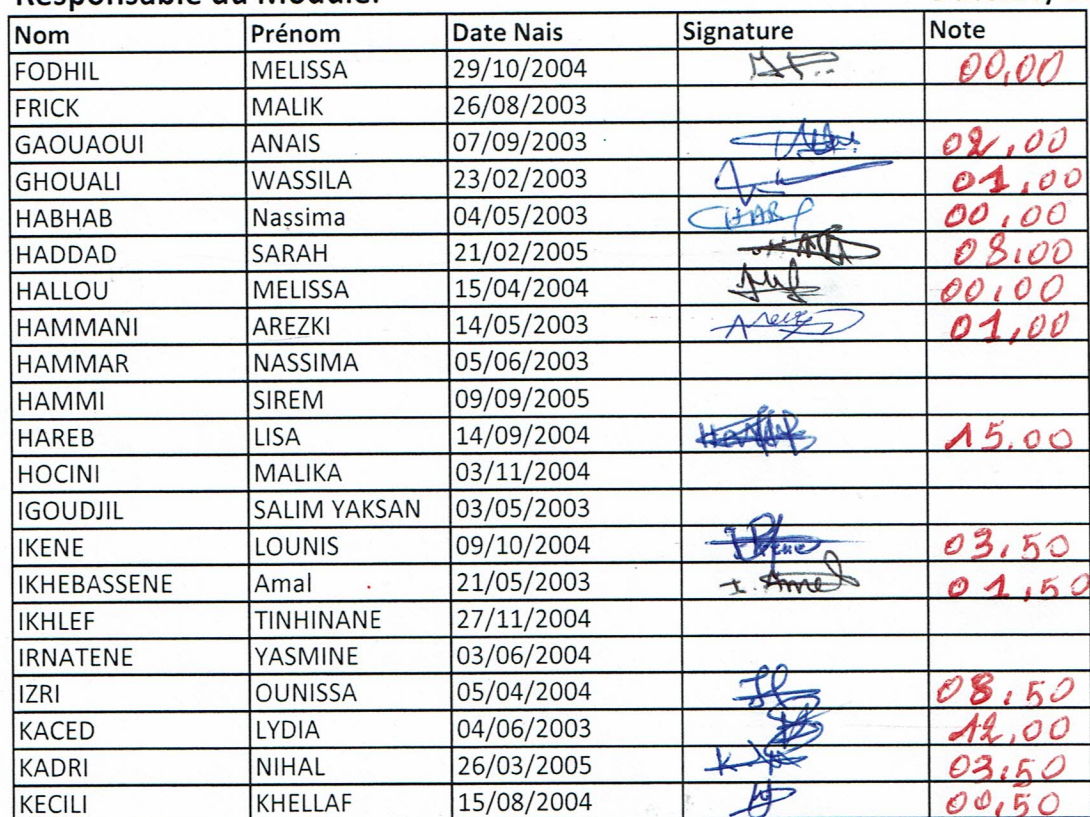 Responsable du Module:
Nom Prénom Date Nais Signature Note
FODHIL MELISSA 29/10/2004 00,00
FRICK MALIK 26/08/2003
GAOUAOUI ANAIS 07/09/2003 02,00
GHOUALI WASSILA 23/02/2003 01,00
HABHAB Nassima 04/05/2003 00,00
HADDAD SARAH 21/02/2005 08,00
HALLOU MELISSA 15/04/2004 00,00
HAMMANI AREZKI 14/05/2003 01,00
HAMMAR NASSIMA 05/06/2003
HAMMI SIREM 09/09/2005
HAREB LISA 14/09/2004 15,00
HOCINI MALIKA 03/11/2004
IGOUDJIL SALIM YAKSAN 03/05/2003
IKENE LOUNIS 09/10/2004 03,50
IKHEBASSENE Amal 21/05/2003 I. Amel 01,50
IKHLEF TINHINANE 27/11/2004
IRNATENE YASMINE 03/06/2004
IZRI OUNISSA 05/04/2004 08,50
KACED LYDIA 04/06/2003 12,00
KADRI NIHAL 26/03/2005 03,50
KECILI KHELLAF 15/08/2004 00,50